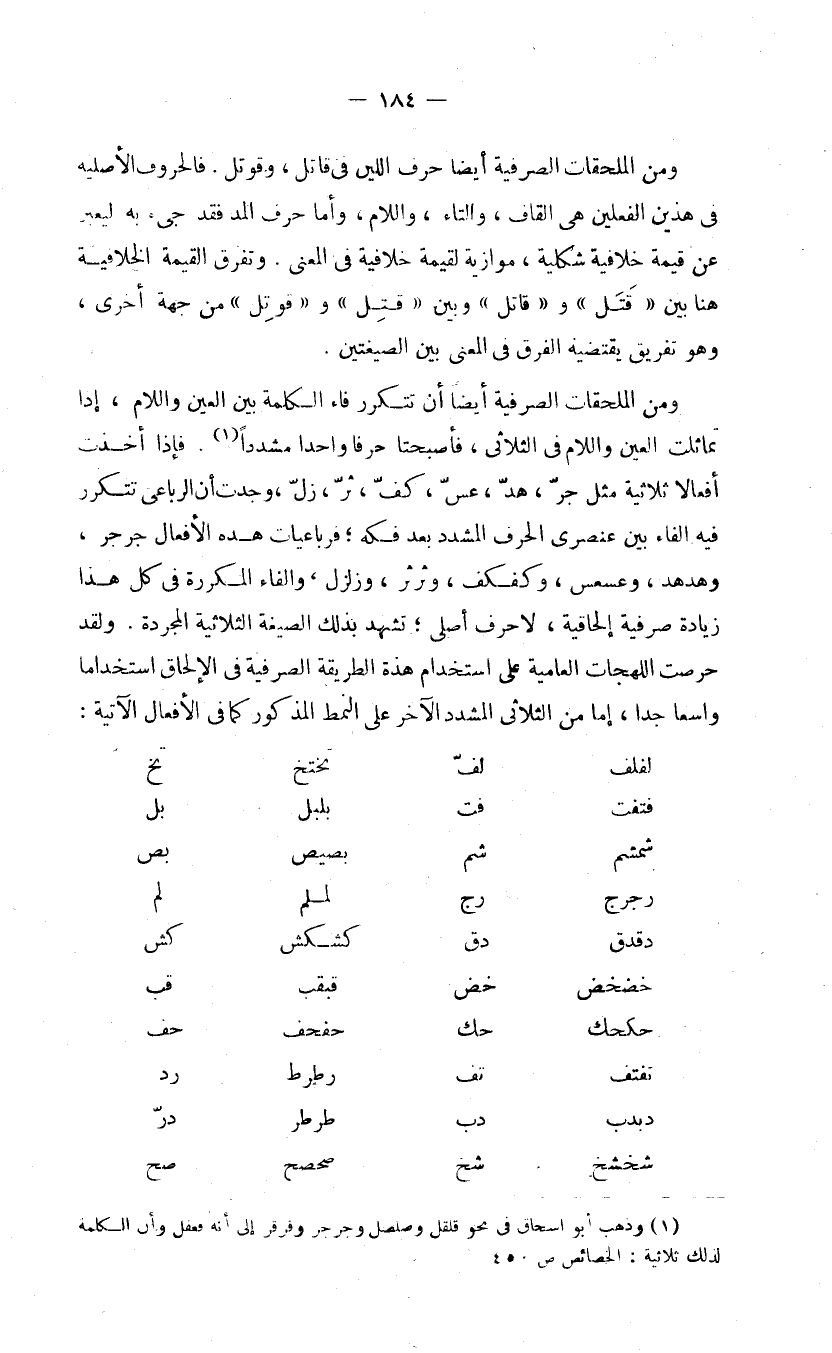 — ١٨٤ —
ومن الملحقات الصرفية أيضا حرف اللين فى قاتل ، وقوتل . فالحروف الأصليه
فى هذين الفعلين هى القاف ، والتاء ، واللام ، وأما حرف المد فقد جىء به ليعبر
عن قيمة خلافية شكلية ، موازية لقيمة خلافية فى المعنى . وتفرق القيمة الخلافيـة
هنا بين « قَتَـل » و « قاتل » وبين « قـتِـل » و « قوتِل » من جهة أخرى ،
وهو تفريق يقتضيه الفرق فى المعنى بين الصيغتين .
ومن الملحقات الصرفية أيضاً أن تتـكرر فاء الـكلمة بين العين واللام ، إذا
تماثلت العين واللام فى الثلاثى ، فأصبحتا حرفا واحدا مشدداً(١) . فإذا أخـذت
أفعالا ثلاثية مثل جرّ ، هدّ ، عسّ ، كفّ ، ثرّ ، زلّ ، وجدت أن الرباعى تتـكرر
فيه الفاء بين عنصرى الحرف المشدد بعد فـكه ؛ فرباعيات هـذه الأفعال جرجر ،
وهدهد ، وعسعس ، وكفـكف ، وثرثر ، وزلزل ، والفاء المـكررة فى كل هـذا
زيادة صرفية إلحاقية ، لا حرف أصلى ؛ تشهد بذلك الصيغة الثلاثية المجردة . ولقد
حرصت اللهجات العامية على استخدام هذة الطريقة الصرفية فى الإلحاق استخداما
واسعا جدا ، إما من الثلاثى المشدد الآخر على النمط المذكور كما فى الأفعال الآتية :
لفلف لفّ بختخ بخ
فتفت فت بلبل بل
شمشم شم بصبص بص
رجرج رج لـلم لم
دقدق دق كشـكش كش
خضخض خض قبقب قب
حكحك حك حفحف حف
تفتف تف رطرط رد
دبدب دب طرطر درّ
شخشخ شخ صحصح صح
(١) وذهب أبو اسحاق فى نحو قلقل وصلصل وجرجر وفرفر إلى أنه فعفل وأن الـكلمة
لذلك ثلاثية : الخصائص ص ٤٥٠